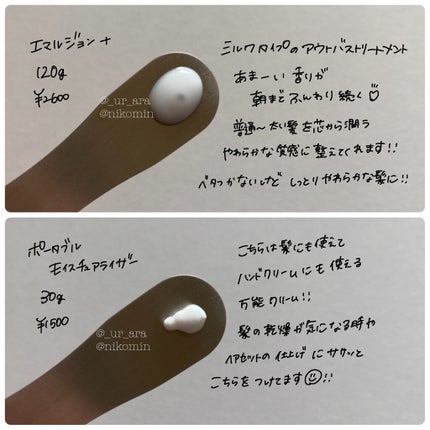 エマルジョン+
120g
¥2600
@_ur_ara
@nikomin
ミルクタイプのアウトバストリートメント
あまーい香りが
朝までふんわり続く
普通〜太い髪を芯から潤う
やわらかな質感に整えてくれます!!
ベタつかないけど しっとりやわらかな髪に!!
ポータブル
モイスチュアライザー
30g
¥1500
@_ur_ara
@nikomin
こちらは髪にも使えて
ハンドクリームにも使える
万能クリーム!!
髪の乾燥が気になる時や
ヘアセットの仕上げにササッと
こちらをつけてます☺!!